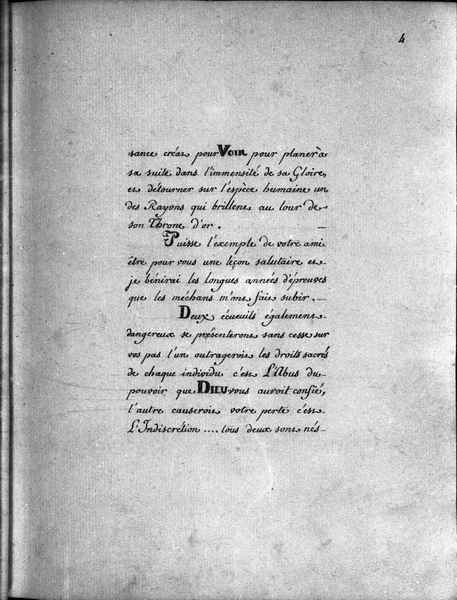 4
sance créas pour VOIR pour planer à
sa suite dans l'immensité de sa Gloire,
et détourner sur l'espèce humaine un
des Rayons qui brillent au tour de
son Throne d'or.
Puisse l'exemple de votre ami
être pour vous une leçon salutaire et
je bénirai les longues années d'épreuves
que les méchans m'ont fait subir.
Deux écueuils également
dangereux se présenteront sans cesse sur
vos pas l'un outrageroit les droits sacrés
de chaque individu c'est L'Abus du
pouvoir que DIEU vous auroit confié,
l'autre causeroit votre perte c'est
L'Indiscretion .... tous deux sont nés